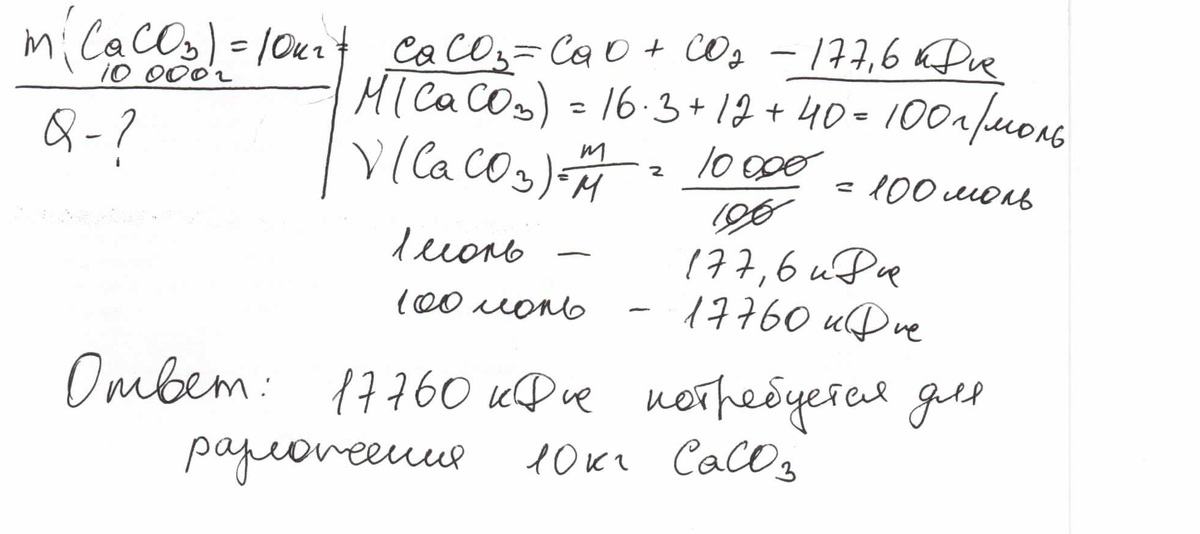 m(CaCO₃) = 10кг
10 000г
Q - ?
CaCO₃ = CaO + CO₂ - 177,6 кДж
M(CaCO₃) = 16·3 + 12 + 40 = 100г/моль
ν(CaCO₃) = m/M = 10 000/100 = 100 моль
1 моль - 177,6 кДж
100 моль - 17760 кДж
Ответ: 17760 кДж потребуется для
разложения 10кг CaCO₃